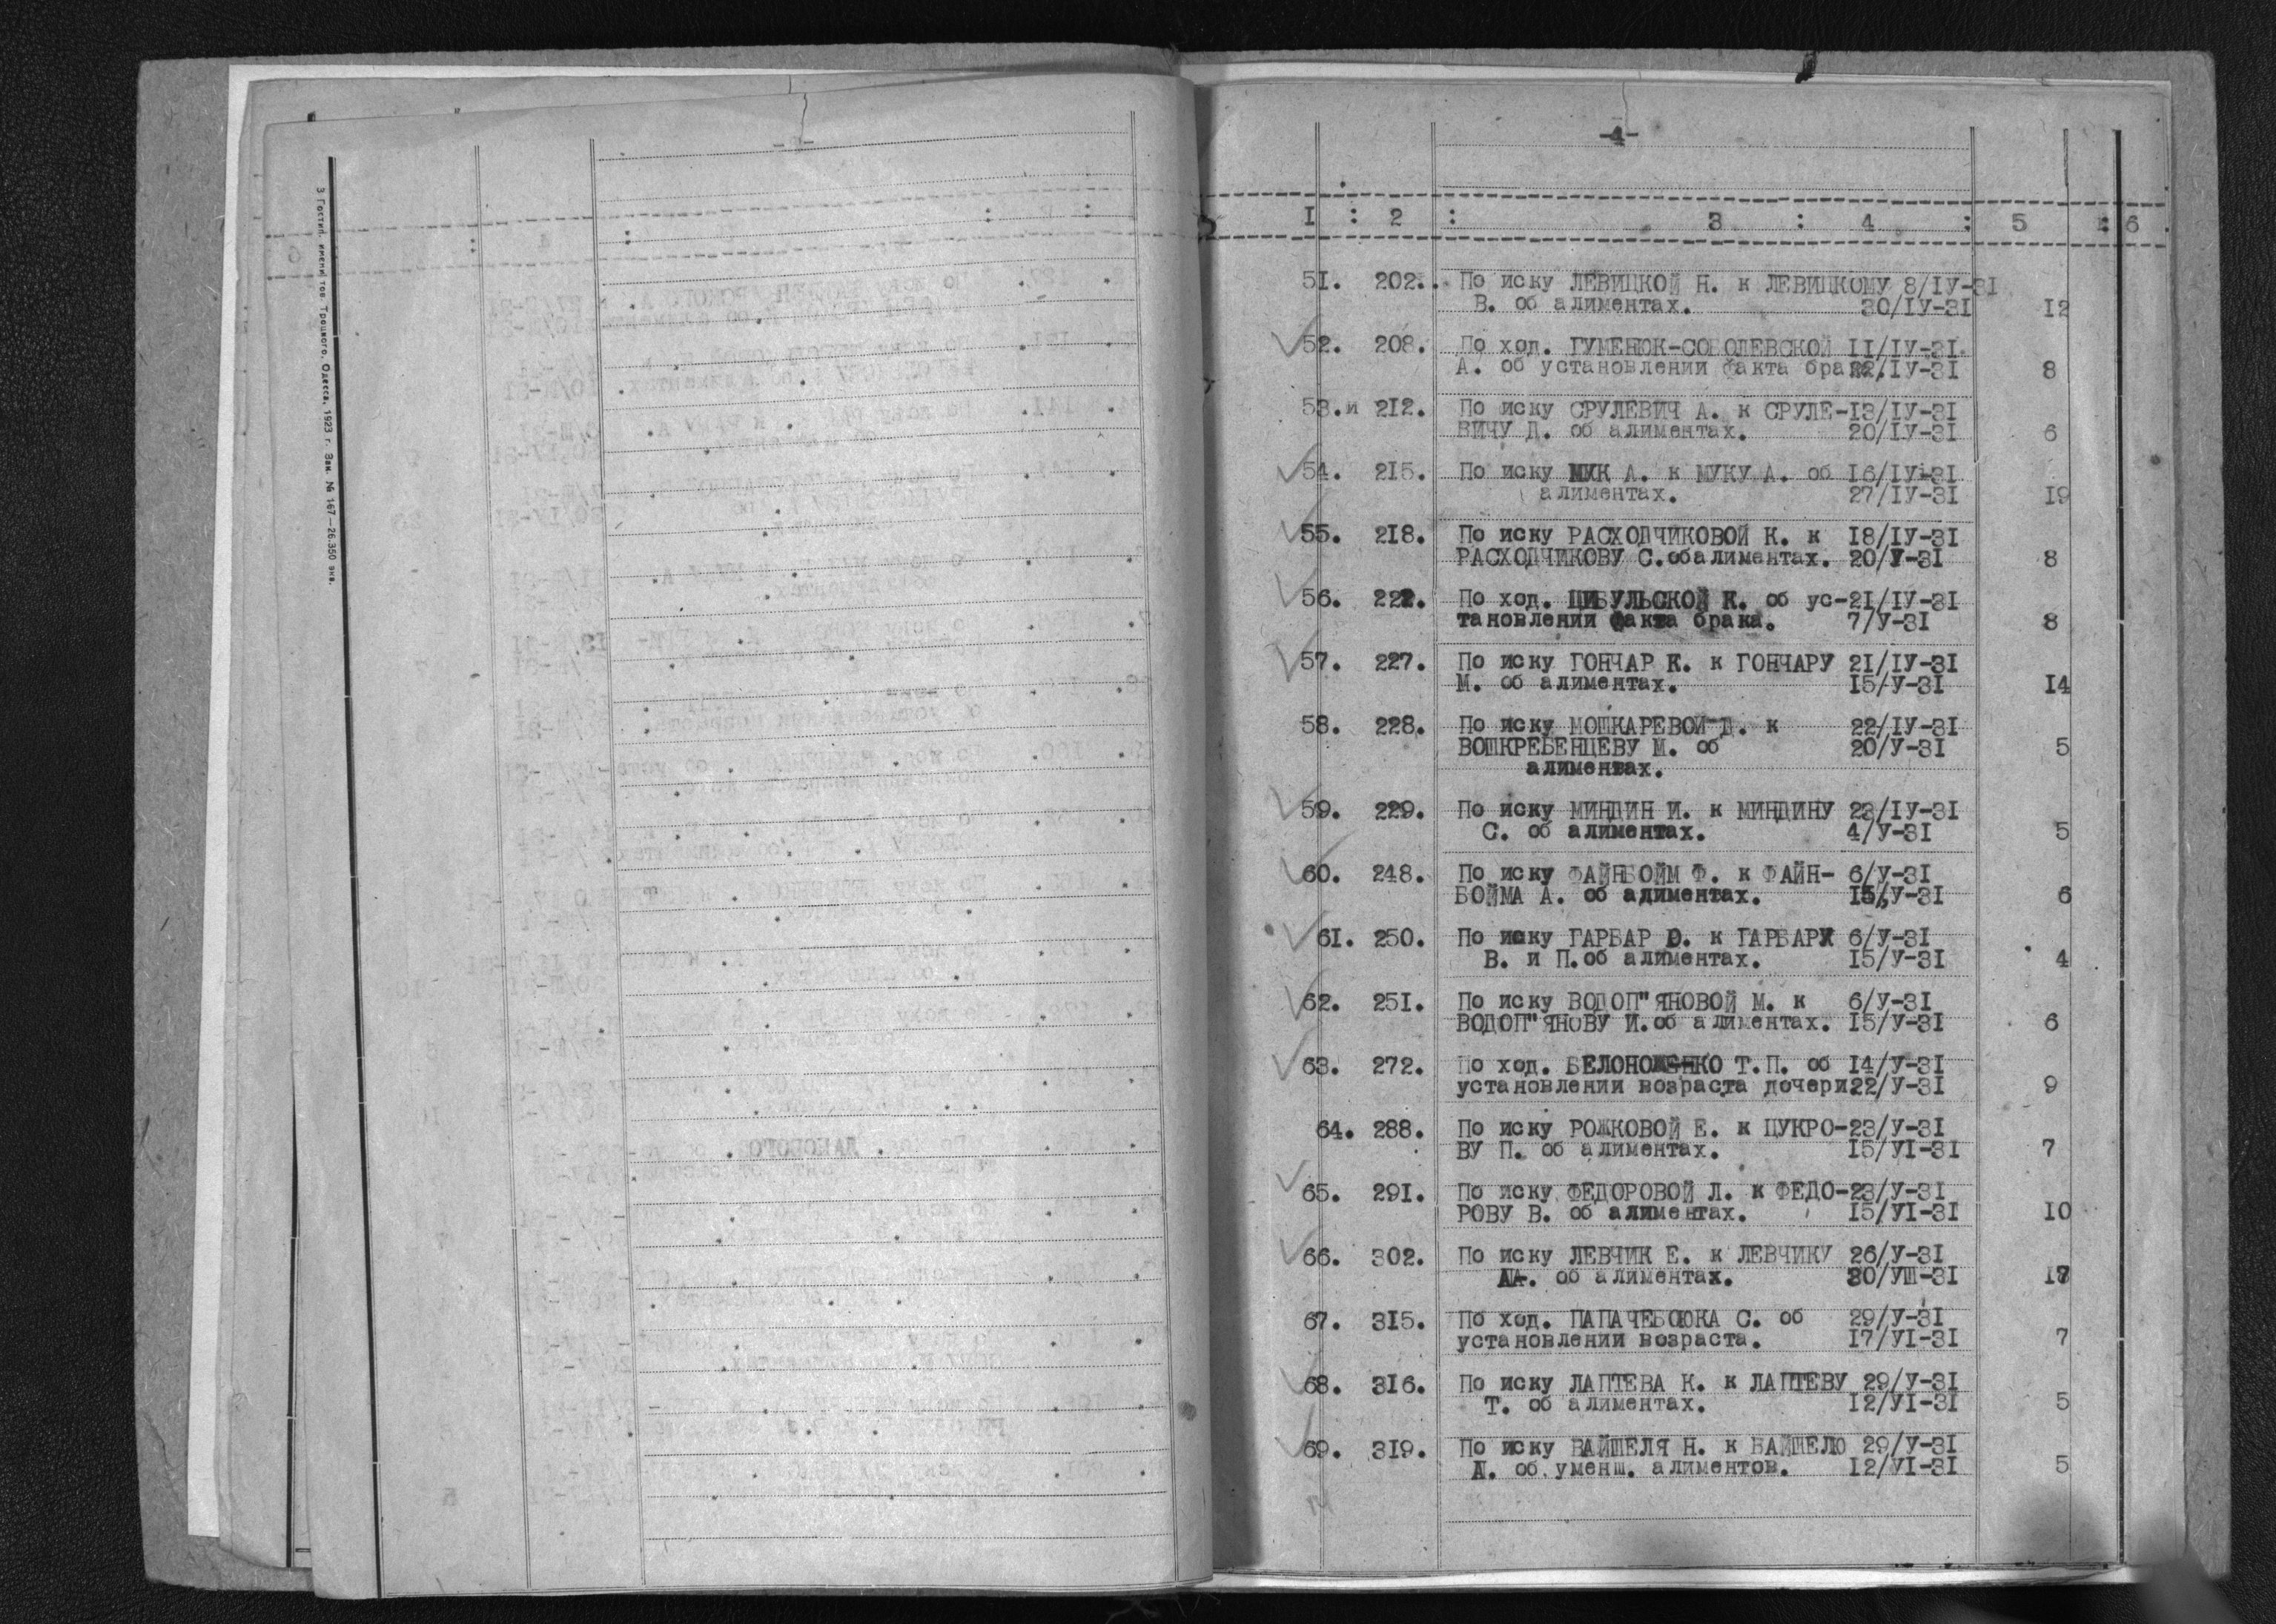 3 Гостип. имени тов. Троцкого, Одесса, 1923 г. Зак. № 167—26.350 экз.
-4-
I : 2 : 3 : 4 : 5 : 6
51. 202. По иску ЛЕВИЦКОЙ Н. к ЛЕВИЦКОМУ 8/IУ-31
В. об алиментах. 30/IУ-31 12
52. 208. По ход. ГУМЕНЮК-СОБОЛЕВСКОЙ II/IУ-31
А. об установлении факта брака. 22/IУ-31 8
53.и 212. По иску СРУЛЕВИЧ А. к СРУЛЕ-13/IУ-31
ВИЧУ Д. об алиментах. 20/IУ-31 6
54. 215. По иску МУК А. к МУКУ А. об 16/IУ-31
алиментах. 27/IУ-31 19
55. 218. По иску РАСХОДЧИКОВОЙ К. к 18/IУ-31
РАСХОДЧИКОВУ С.обалиментах. 20/У-31 8
56. 222. По ход. ЦИБУЛЬСКОЙ К. об ус-21/IУ-31
тановлении факта брака. 7/У-31 8
57. 227. По иску ГОНЧАР К. к ГОНЧАРУ 21/IУ-31
М. об алиментах. 15/У-31 14
58. 228. По иску МОШКАРЕВОЙ Д. к 22/IУ-31
ВОШКРЕБЕНЦЕВУ М. об 20/У-31 5
алиментах.
59. 229. По иску МИНДИН И. к МИНДИНУ 23/IУ-31
С. об алиментах. 4/У-31 5
60. 248. По иску ФАЙНБОЙМ Ф. к ФАЙН- 6/У-31
БОЙМА А. об алиментах. 15/У-31 6
61. 250. По иску ГАРБАР к ГАРБАРУ 6/У-31
В. и П.об алиментах. 15/У-31 4
62. 251. По иску ВОДОП"ЯНОВОЙ М. к 6/У-31
ВОДОП"ЯНОВУ И.об алиментах. 15/У-31 6
63. 272. По ход. БЕЛОНОЖЕНКО Т.П. об 14/У-31
установлении возраста дочери22/У-31 9
64. 288. По иску РОЖКОВОЙ Е. к ЦУКРО-23/У-31
ВУ П. об алиментах. 15/УI-31 7
65. 291. По иску ФЕДОРОВОЙ Л. к ФЕДО-23/У-31
РОВУ В. об алиментах. 15/УI-31 10
66. 302. По иску ЛЕВЧИК Е. к ЛЕВЧИКУ 26/У-31
об алиментах. 30/УШ-31
67. 315. По ход. ПАПАЧЕБОЮКА С. об 29/У-31
установлении возраста. 17/УI-31 7
68. 316. По иску ЛАПТЕВА К. к ЛАПТЕВУ 29/У-31
Т. об алиментах. 12/УI-31 5
69. 319. По иску ВАЙШЕЛЯ Н. к ВАЙШЕЛЮ 29/У-31
об уменш. алиментов. 12/УI-31 5